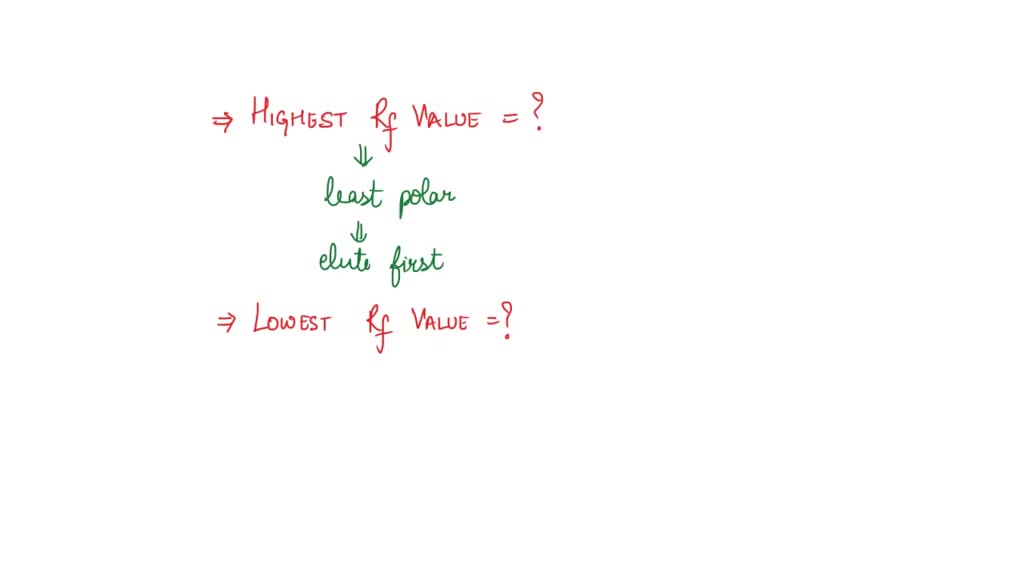 ⇒ HIGHEST Rf VALUE = ?
⇓
least polar
⇓
elute first
⇒ LOWEST Rf VALUE = ?